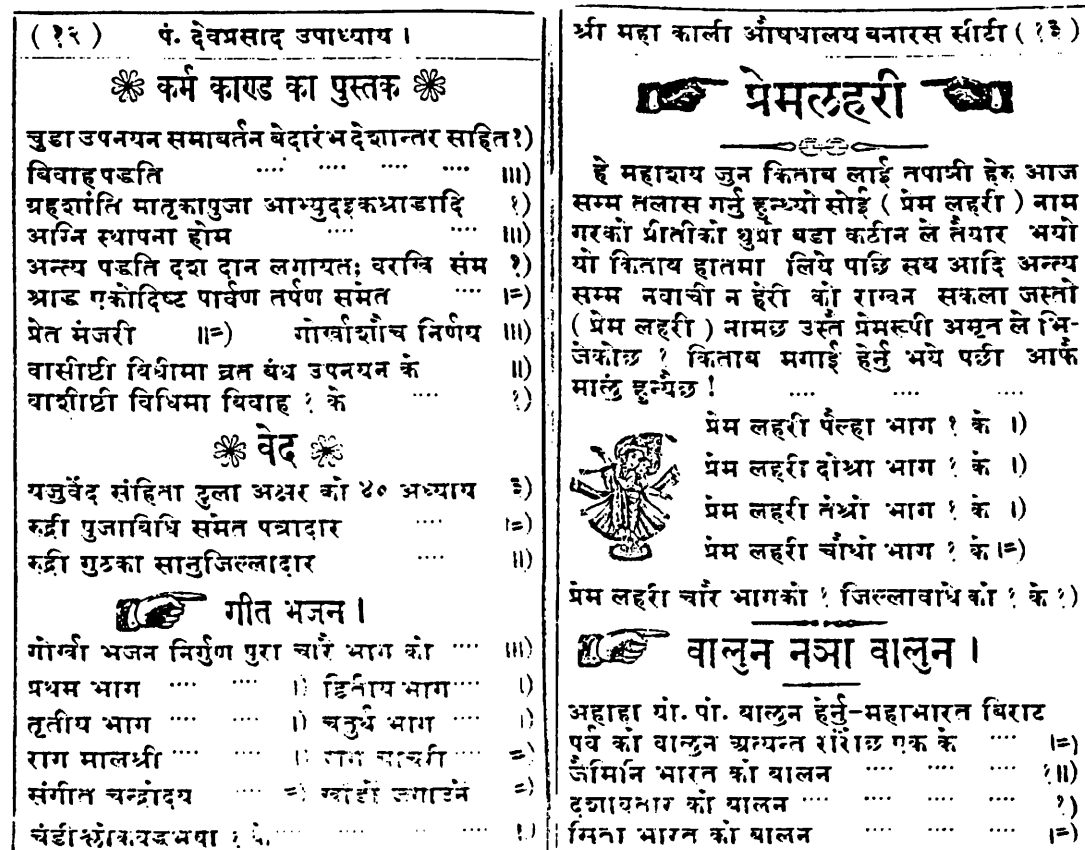 ( १२ ) पं. देवप्रसाद उपाध्याय ।
कर्म काण्ड का पुस्तक
चुडा उपनयन समाबर्तन बेदारंभ देशान्तर साहित १)
बिवाह पद्धति .... .... .... .... ॥।)
ग्रहशांति मातृकापुजा आभ्युदइकश्राद्धादि १)
अग्नि स्थापना होम .... .... ॥।)
अन्त्य पद्धति दश दान लगायतः वरखि संम १)
श्राद्ध एकोदिष्ट पार्वण तर्पण समेत .... ।=)
प्रेत मंजरी ॥=) गोर्खाशौच निर्णय ॥।)
वासीष्टी विधीमा व्रत बंध उपनयन के ॥)
वाशीष्टी विधिमा विवाह १ के .... १)
वेद
यजुर्वेद संहिता ठुला अक्षर को ४० अध्याय ३)
रुद्री पुजाविधि समेत पत्रादार .... ।=)
रुद्री गुटका सानुजिल्लादार .... ॥)
गीत भजन ।
गोर्खा भजन निर्गुण पुरा चारै भाग को .... ॥।)
प्रथम भाग .... .... ।) द्वितीय भाग .... ।)
तृतीय भाग .... .... ।) चतुर्थ भाग .... ।)
राग मालश्री .... .... ।) राग =)
संगीत चन्द्रोदय .... =) =)
चंडीश्लोकवद्धभषा १
श्री महा काली औषधालय बनारस सीटी ( १३ )
प्रेमलहरी
हे महाशय जुन किताब लाई तपाञी हेरु आज
सम्म तलास गर्नु हुन्थ्यो सोई ( प्रेम लहरी ) नाम
गरको प्रीतीको थुप्रो बडा कठीन ले तैयार भयो
यो किताब हातमा लिये पछि सब आदि अन्त्य
सम्म नवाची न हेरी को राख्न सकला जस्तो
( प्रेम लहरी ) नामछ उस्तै प्रेमरूपी अमृत ले भि-
जेकोछ ? किताब मगाई हेर्नु भये पछी आफै
मालुं हुन्यैछ ! .... .... ....
प्रेम लहरी पैल्हा भाग १ के ।)
प्रेम लहरी दोश्रा भाग १ के ।)
प्रेम लहरी तेश्रो भाग १ के ।)
प्रेम लहरी चौथो भाग १ के ।=)
प्रेम लहरी चारै भागको १ जिल्लाबाधे को १ के १)
वालुन नञा वालुन ।
अहाहा यो. पो. बालुन हेर्नु-महाभारत बिराट
पर्व को वालुन अत्यन्त एक के .... ।=)
जैमिनि भारत को बालन .... .... .... १॥)
दशावतार को बालन .... .... .... १)
सिता भारत को बालन .... .... .... ।=)